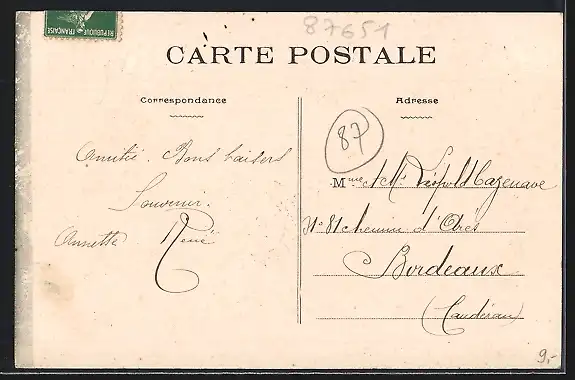 REPUBLIQUE FRANÇAISE
87651
CARTE POSTALE
Correspondance
Adresse
87
Amitié. Bons baisers
Souvenir.
Annette René
Mme & Mr Léopold Cazenave
No 81 chemin d'Arès
Bordeaux
(Caudéran)
9.-